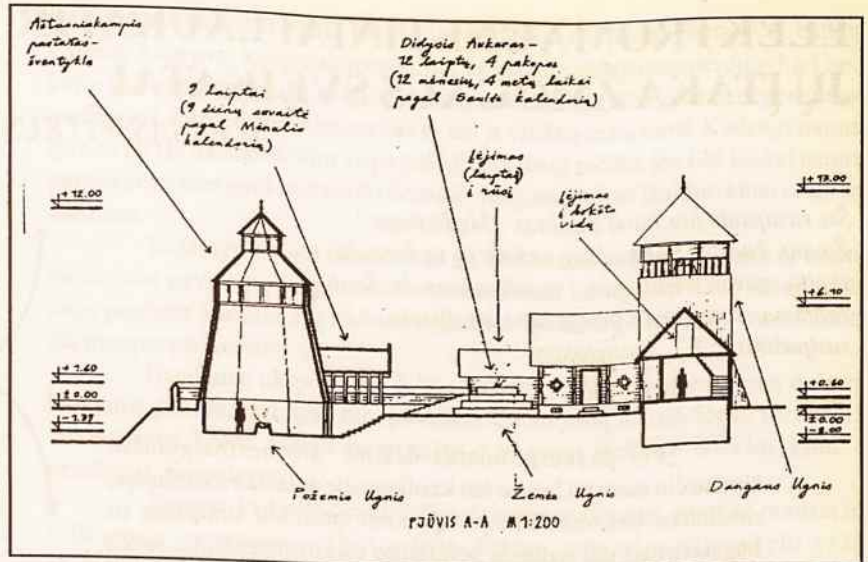 Aštuoniakampis
pastatas-
šventykla
9 laiptai
(9 dienų savaitė
pagal Mėnulio
kalendorių)
Didysis Aukuras-
12 laiptų, 4 pakopos
(12 mėnesių, 4 metų laikai
pagal Saulės kalendorių)
Įėjimas
(laiptai)
į rūsį
Įėjimas
į bokšto
vidų
+12.00
+1.60
±0.00
+6.10
+0.60
±0.00
-2.00
Požemio Ugnis
Žemės Ugnis
Dangaus Ugnis
PJŪVIS A-A M 1:200